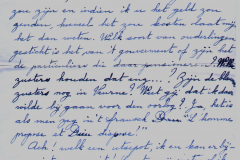 zou zijn en indien ik er het geld zou
gunden, hoeveel het zou kosten laat mij
het dan weten. Welk soort van ouderlingen
gesticht is het van 't gouvernement of zijn het
de particuliere die daar
zusters houden dat
zusters nog in Veurne? Weet gij dat ik daar
wilde bij gaan voor den oorlog? Ja, het is
als men zegt in 't fransch Dieu "L'homme
propose et Dieu dispose!"
Ach! welk een uitstapt, ik en kan er bij